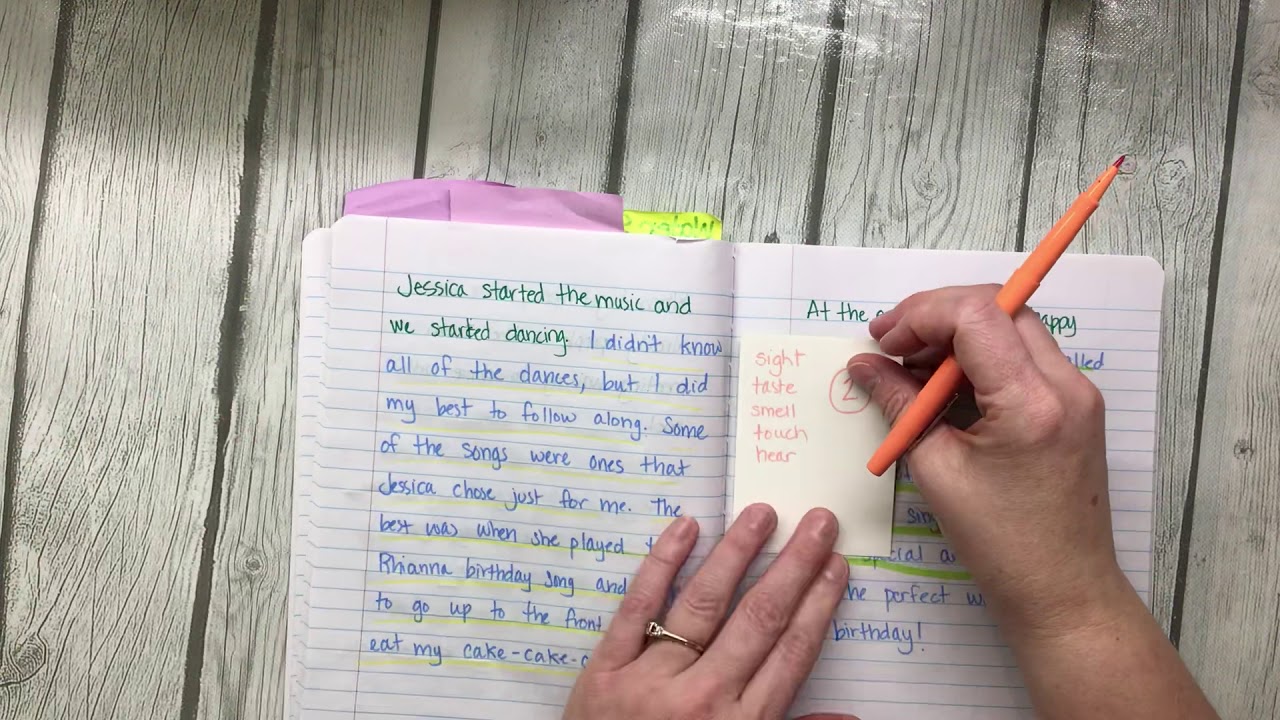 Jessica started the music and
we started dancing. I didn't know
all of the dances, but I did
my best to follow along. Some
of the songs were ones that
Jessica chose just for me. The
best was when she played
Rhianna birthday song and
to go up to the front
eat my cake-cake-c
At the
sight
taste
smell
touch
hear
2
sing
he perfect w
birthday!